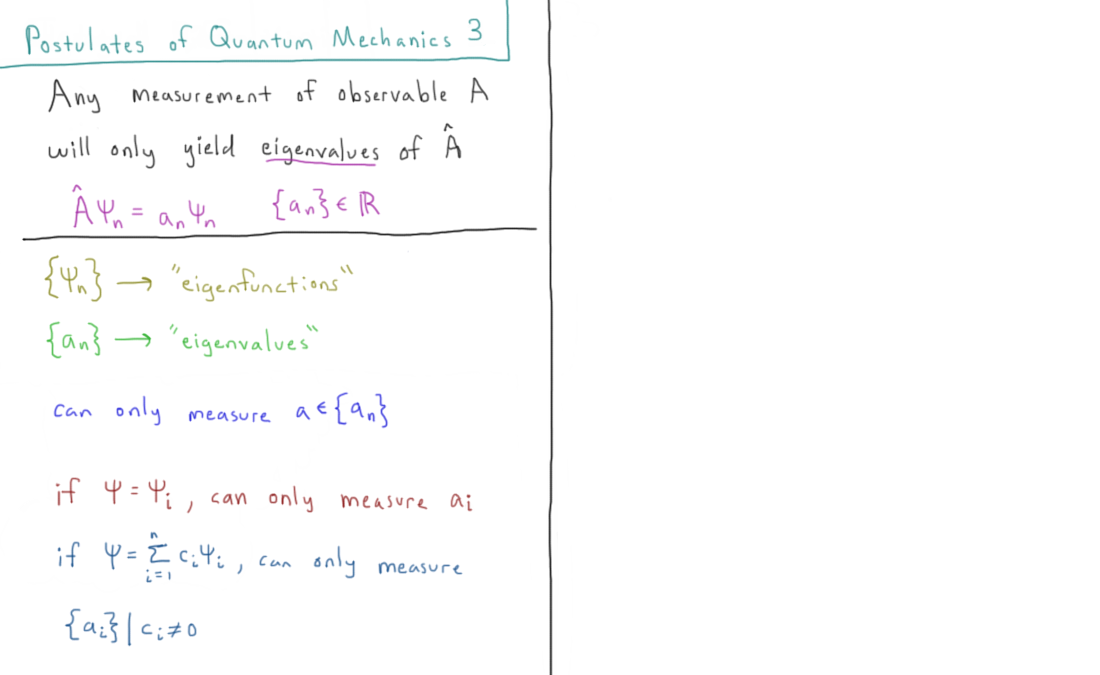 Postulates of Quantum Mechanics 3
Any measurement of observable A
will only yield eigenvalues of Â
ÂΨₙ = aₙΨₙ {aₙ} ∈ ℝ
{Ψₙ} → "eigenfunctions"
{aₙ} → "eigenvalues"
can only measure a ∈ {aₙ}
if Ψ = Ψᵢ, can only measure aᵢ
if Ψ = Σⁿᵢ₌₁ cᵢΨᵢ, can only measure
{aᵢ} | cᵢ ≠ 0